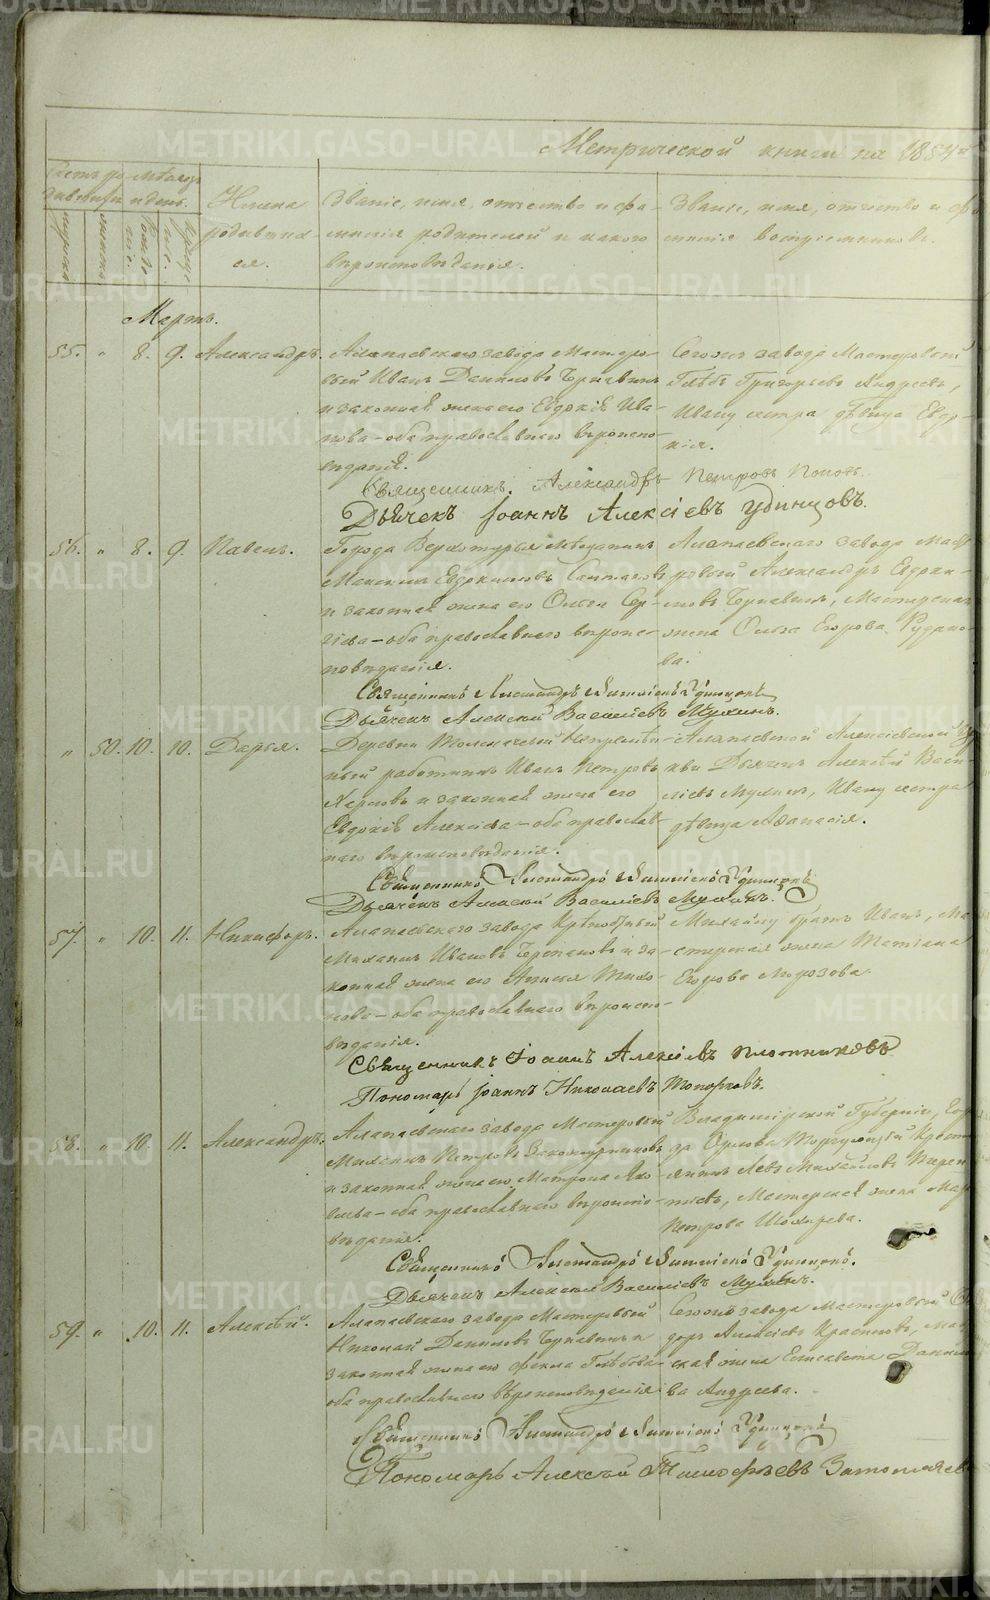 Метрической книги на 1854й
Счетъ родившихся
Мѣсяцъ и день.
Имена родившихся.
Званіе, имя, отчество и фамилія родителей и какого вѣроисповѣданія.
Званіе, имя, отчество и фамилія воспріемниковъ.
Мартъ.
55. " 8. 9. Александръ.
Алапаевскаго завода Мастеро-
вый Иванъ Даниловъ Чернавинъ
и законная жена его Евдокія Ива-
нова – оба православнаго вѣроиспо-
вѣданія.
Сегожъ завода Мастеровой
Глѣбъ Григорьевъ Андреевъ,
Ивану сестра дѣвица Евдо-
кія.
Священникъ Александръ Петровъ Поповъ.
Дьячекъ Іоаннъ Алексіевъ Удинцовъ.
56. " 8. 9. Павелъ.
Города Верхотурья мѣщанинъ
Максимъ Евдокимовъ
и законная жена его Ольга Сер-
гіева – оба православнаго вѣроис-
повѣданія.
Алапаевскаго завода Масте
ровой Александръ Евдоки-
мовъ Чернавинъ, Мастерская
жена Ольга Егорова Рудако-
ва.
Священникъ Александръ Удинцовъ
Дьячекъ Алексій Василіевъ Мухинъ.
" 50. 10. 10. Дарья.
Деревни Толмачевой Непремѣн-
ный работникъ Иванъ Петровъ
и законная жена его
Евдокія Алексіева – оба православ-
наго вѣроисповѣданія.
Алапаевской Алексіевской Цер
кви Дьячекъ Алексѣй Васи-
ліевъ Мухинъ, Ивану сестра
дѣвица Афанасія.
Священникъ Александръ Удинцовъ
Дьячекъ Алексій Василіевъ Мухинъ.
57. " 10. 11. Никифоръ.
Алапаевскаго завода
Михаилъ Ивановъ Черепановъ и за-
конная жена его Анисія Тихо-
нова – оба православнаго вѣроиспо-
вѣданія.
Михаилу братъ Иванъ, Ма-
стерская жена Татіана
Егорова Морозова
Священникъ Іоаннъ Алексіевъ Плотниковъ
Пономарь Іоаннъ Николаевъ Топорковъ.
58. " 10. 11. Александръ.
Алапаевскаго завода Мастеровый
Максимъ Петровъ
и законная жена его Матрона Яко
влева – оба православнаго вѣроиспо-
вѣданія.
Владимірской Губерніи,
Торгующій Крест
янинъ Левъ Михайловъ
Мастерская жена Мар
Петрова
Священникъ Александръ Удинцовъ.
Дьячекъ Алексій Василіевъ Мухинъ.
59. " 10. 11. Алексѣй.
Алапаевскаго завода Мастеровый
Николай Даниловъ Чернавинъ и
законная жена его Фекла Глѣбова
оба православнаго вѣроисповѣданія
Сегожъ завода Мастеровый Ѳе
доръ Алексіевъ Мас
ская жена Елисавета Данило
ва Андреева.
Священникъ Александръ Удинцовъ
Пономарь Алексѣй
METRIKI.GASO-URAL.RU